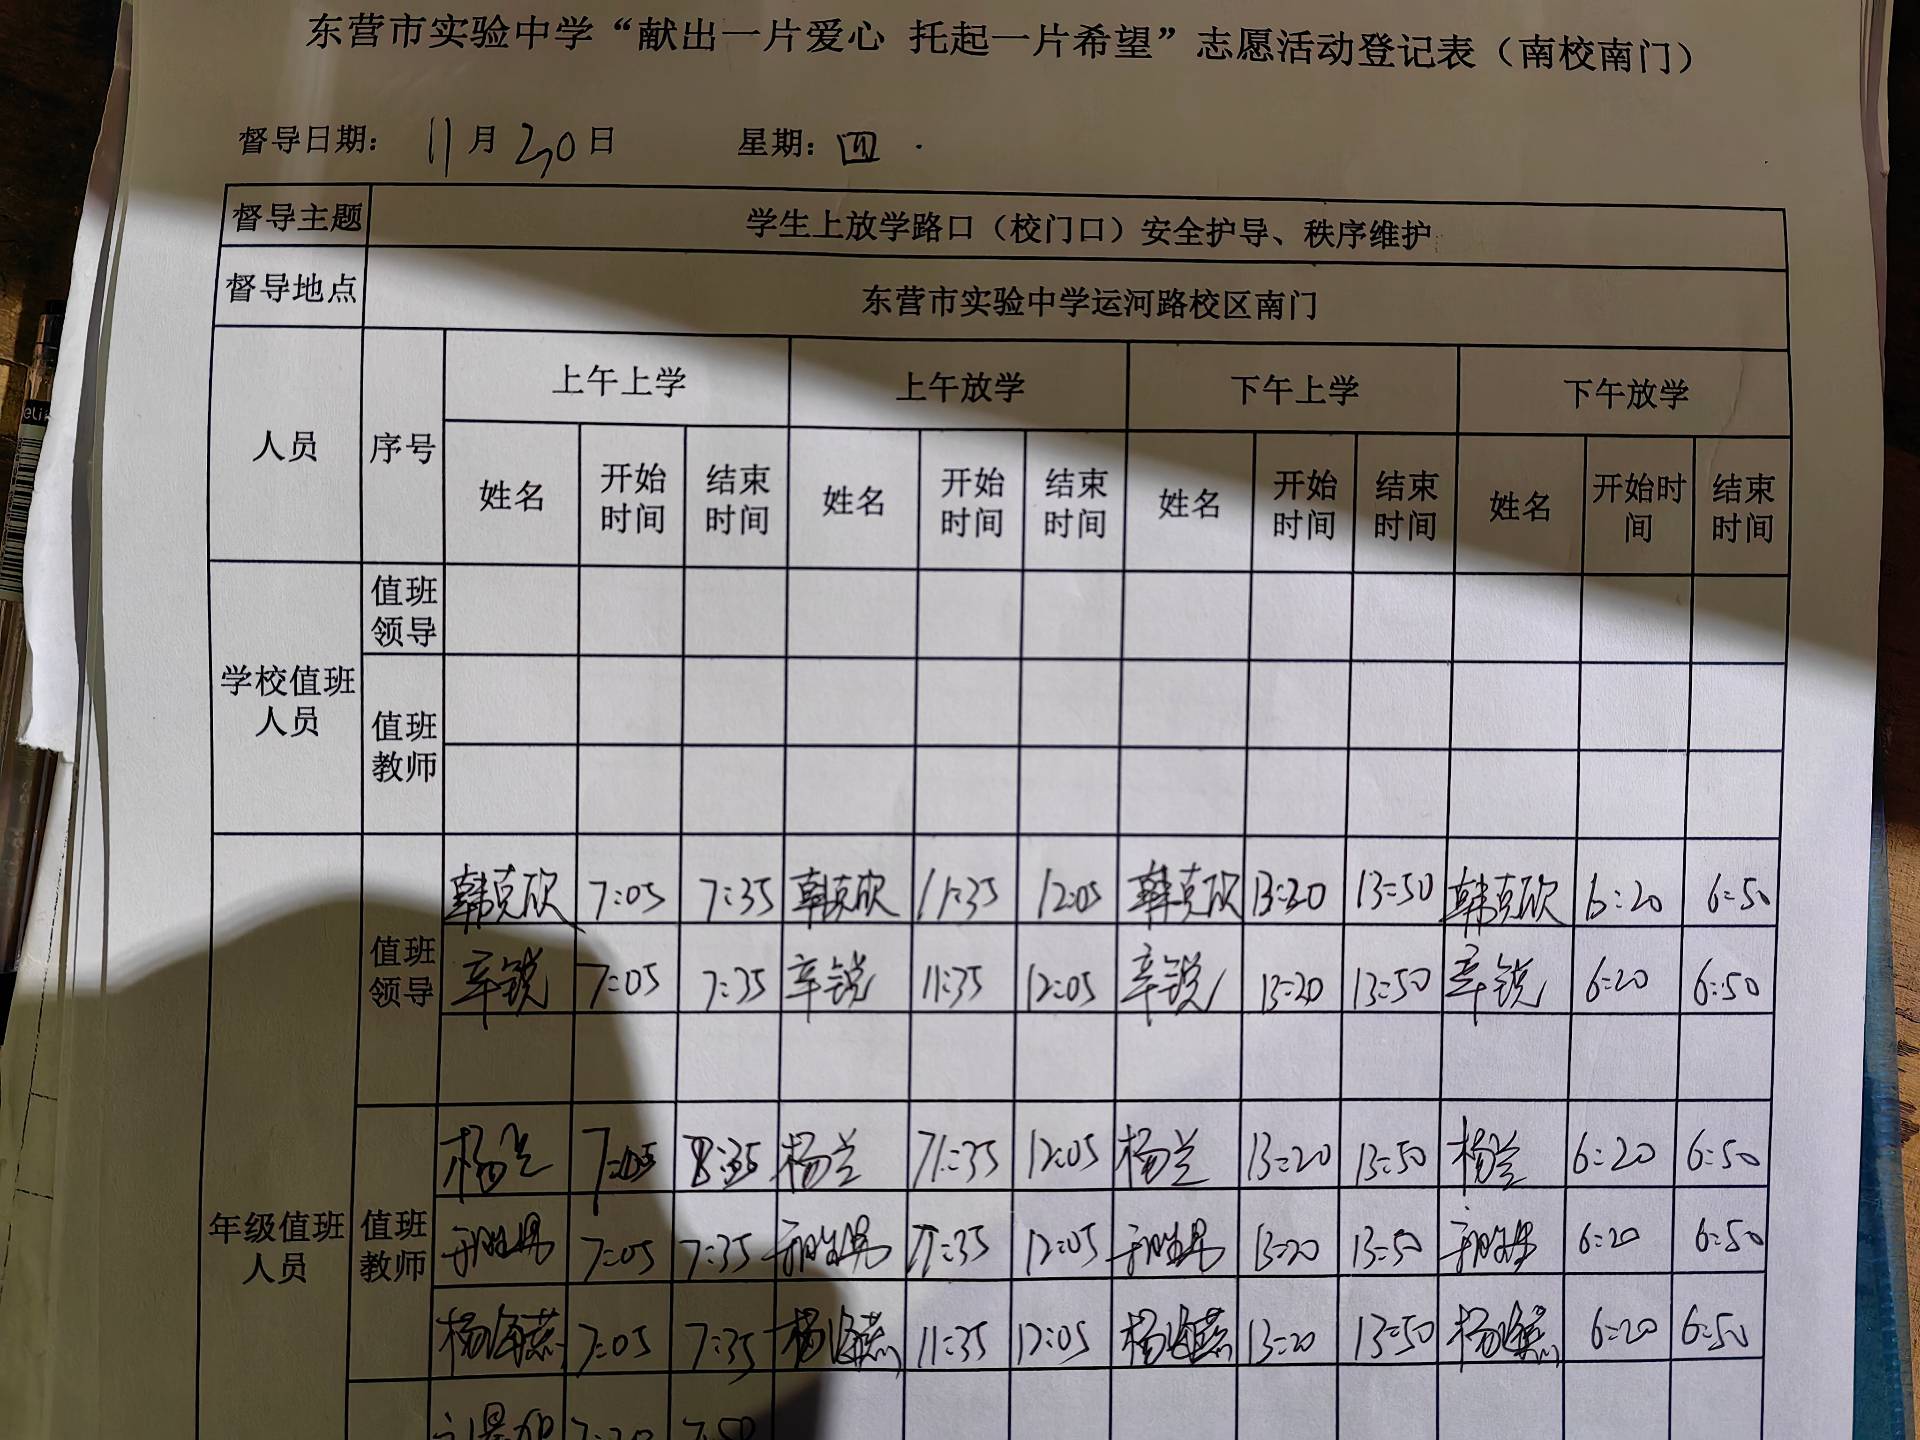 东营市实验中学“献出一片爱心 托起一片希望”志愿活动登记表（南校南门）
督导日期： 11月20日 星期：四
督导主题 学生上放学路口（校门口）安全护导、秩序维护
督导地点 东营市实验中学运河路校区南门
人员 序号 上午上学 上午放学 下午上学 下午放学
姓名 开始时间 结束时间 姓名 开始时间 结束时间 姓名 开始时间 结束时间 姓名 开始时间 结束时间
学校值班人员 值班领导
值班教师
年级值班人员 值班领导 韩克欣 7:05 7:35 韩克欣 11:35 12:05 韩克欣 13:20 13:50 韩克欣 6:20 6:50
辛锐 7:05 7:35 辛锐 11:35 12:05 辛锐 13:20 13:50 辛锐 6:20 6:50
值班教师 杨兰 7:05 8:35 杨兰 11:35 12:05 杨兰 13:20 13:50 杨兰 6:20 6:50
7:05 7:35 11:35 12:05 13:20 13:50 6:20 6:50
杨海燕 7:05 7:35 杨海燕 11:35 12:05 杨海燕 13:20 13:50 杨海燕 6:20 6:50
7:20 7:50
eli